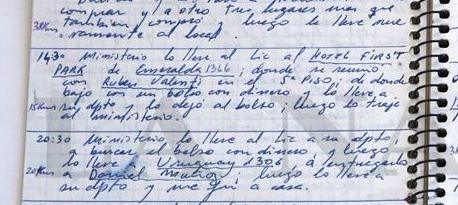 comprar y a otro tres lugares mas que
tambien compró y luego lo lleve nue
38Kms vamente al local.
14:30 Ministerio lo lleve al Lic al HOTEL FIRST
PARK de Esmeralda 1366; donde se reunio
con Ruben Valenti en el 5º PISO; de donde
bajo con un bolso con dinero y lo lleve a
15Kms su dpto y lo dejó al bolso; luego lo traje
al ministerio.
20:30 Ministerio lo lleve al Lic a su dpto,
a buscar el bolso con dinero y luego
lo lleve a Uruguay 1306, a entregarselo
20Kms a Daniel Muñoz; luego lo lleve a
su dpto y me fui a casa.